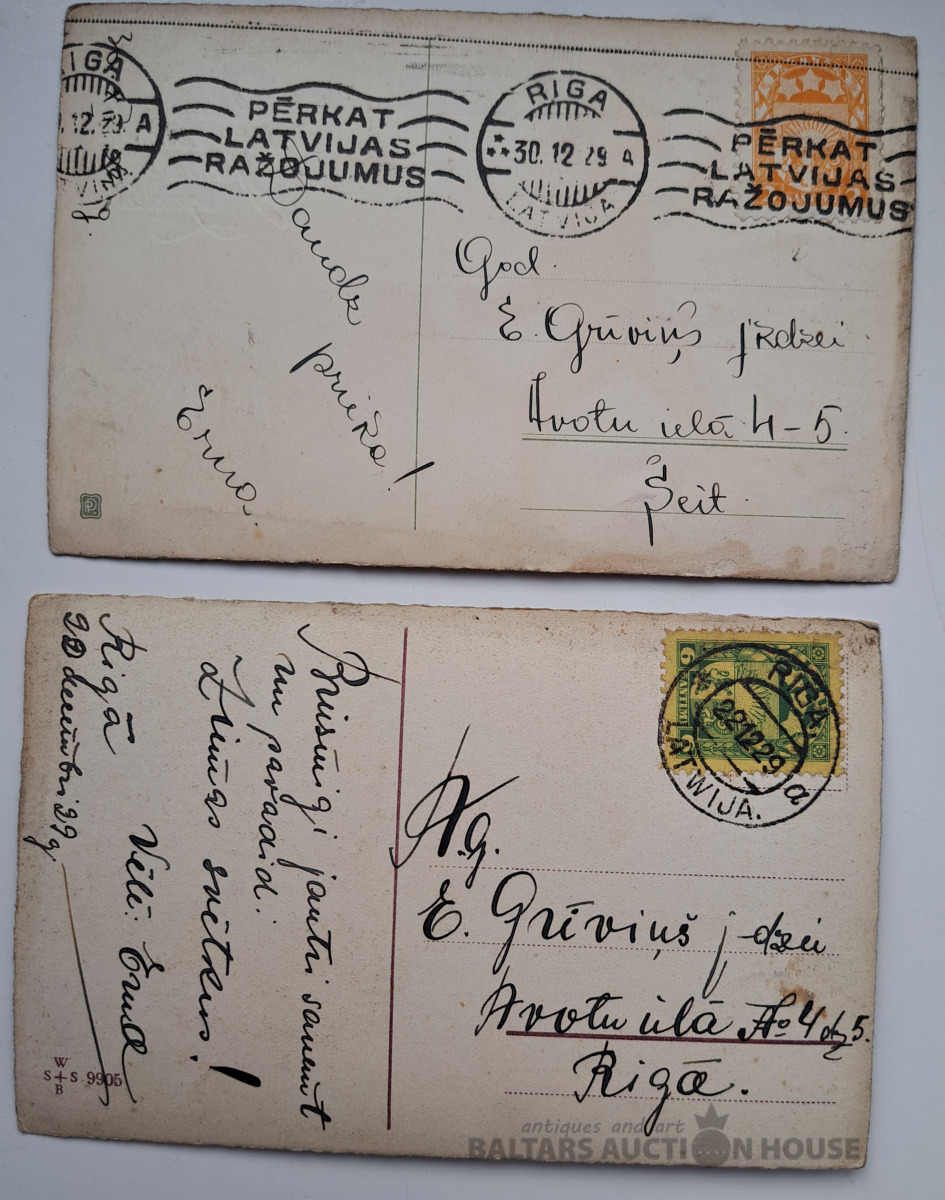 RIGA
.12.29. A
PĒRKAT
LATVIJAS
RAŽOJUMUS
RIGA
30.12 29 A
LATVIJA
PĒRKAT
LATVIJAS
RAŽOJUMUS
Daudz
prieka!
Erna.
God.
E. Grīviņš j'kdzei
Avotu ielā 4-5.
Šeit
Priecīgi jautri saņemt
un pavadīt
Ziemas svētkus!
Vēlē:
Rīgā
29g.
W
S+S 9905
B
6
RĪGA
22.12.29
a
LATWIJA.
A.g.
E. Grīviņš j-dzei
Avotu ielā No 4 dz 5.
Rīgā.
antiques and art
BALTARS AUCTION HOUSE